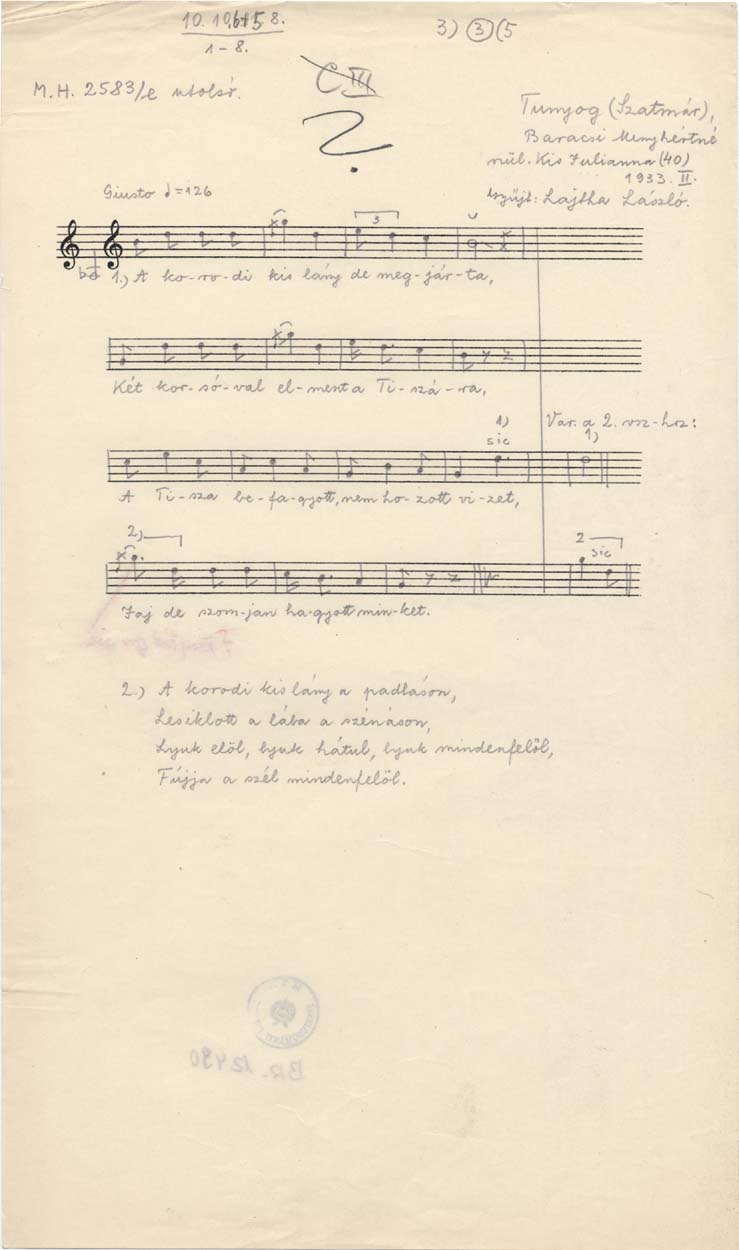 10. 10. 6+5 8.
1 – 8.
3) ③ (5
M.H. 2583/e utolsó.
C III
?
Tunyog (Szatmár),
Baracsi Menyhértné
szül. Kis Julianna (40)
1933. II.
Gyűjt: Lajtha László.
Giusto ♩=126
3
1.) A ko-ro-di kis lány de meg-jár-ta,
Két kor-só-val el-ment a Ti-szá-ra,
1)
sic
Var. a 2. vsz-hz:
1)
A Ti-sza be-fa-gyott, nem ho-zott vi-zet,
2)
2
sic
Jaj de szom-jan ha-gyott min-ket.
2.) A korodi kis lány a padláson,
Lesiklott a lába a szénáson,
Lyuk elöl, lyuk hátul, lyuk mindenfelöl,
Fújja a szél mindenfelöl.
BR. 12490